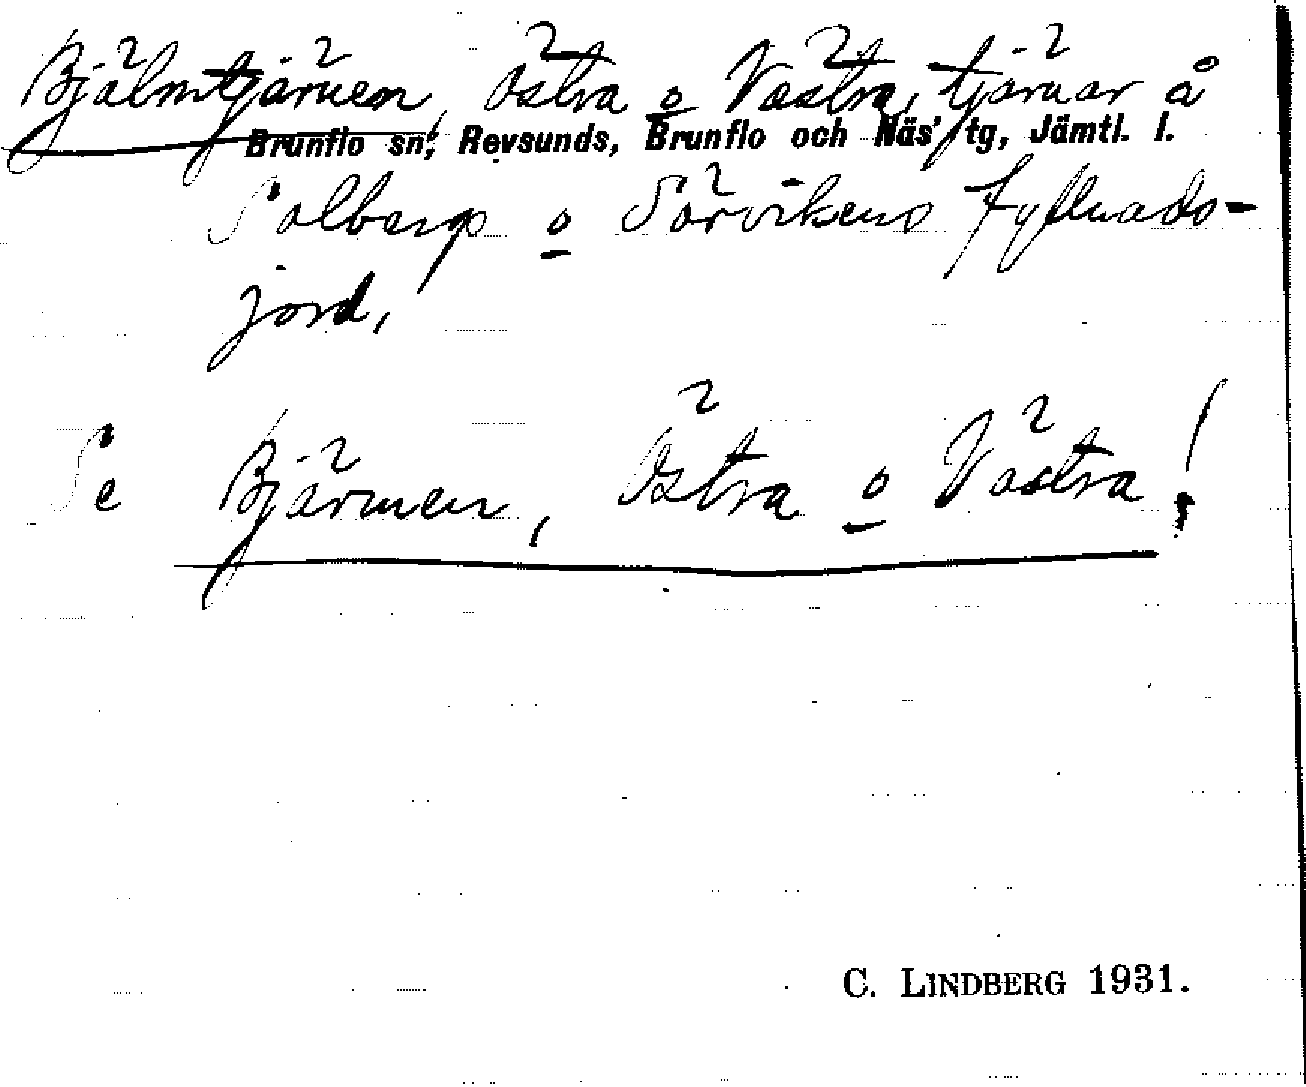 Bjälmtjärnen, Östra o Västra, tjärnar å
Brunflo sn, Revsunds, Brunflo och Näs' tg, Jämtl. l.
Solbergs o Sörvikens fyllnads-
jord,
Se Bjärmen, Östra o Västra!
C. LINDBERG 1931.